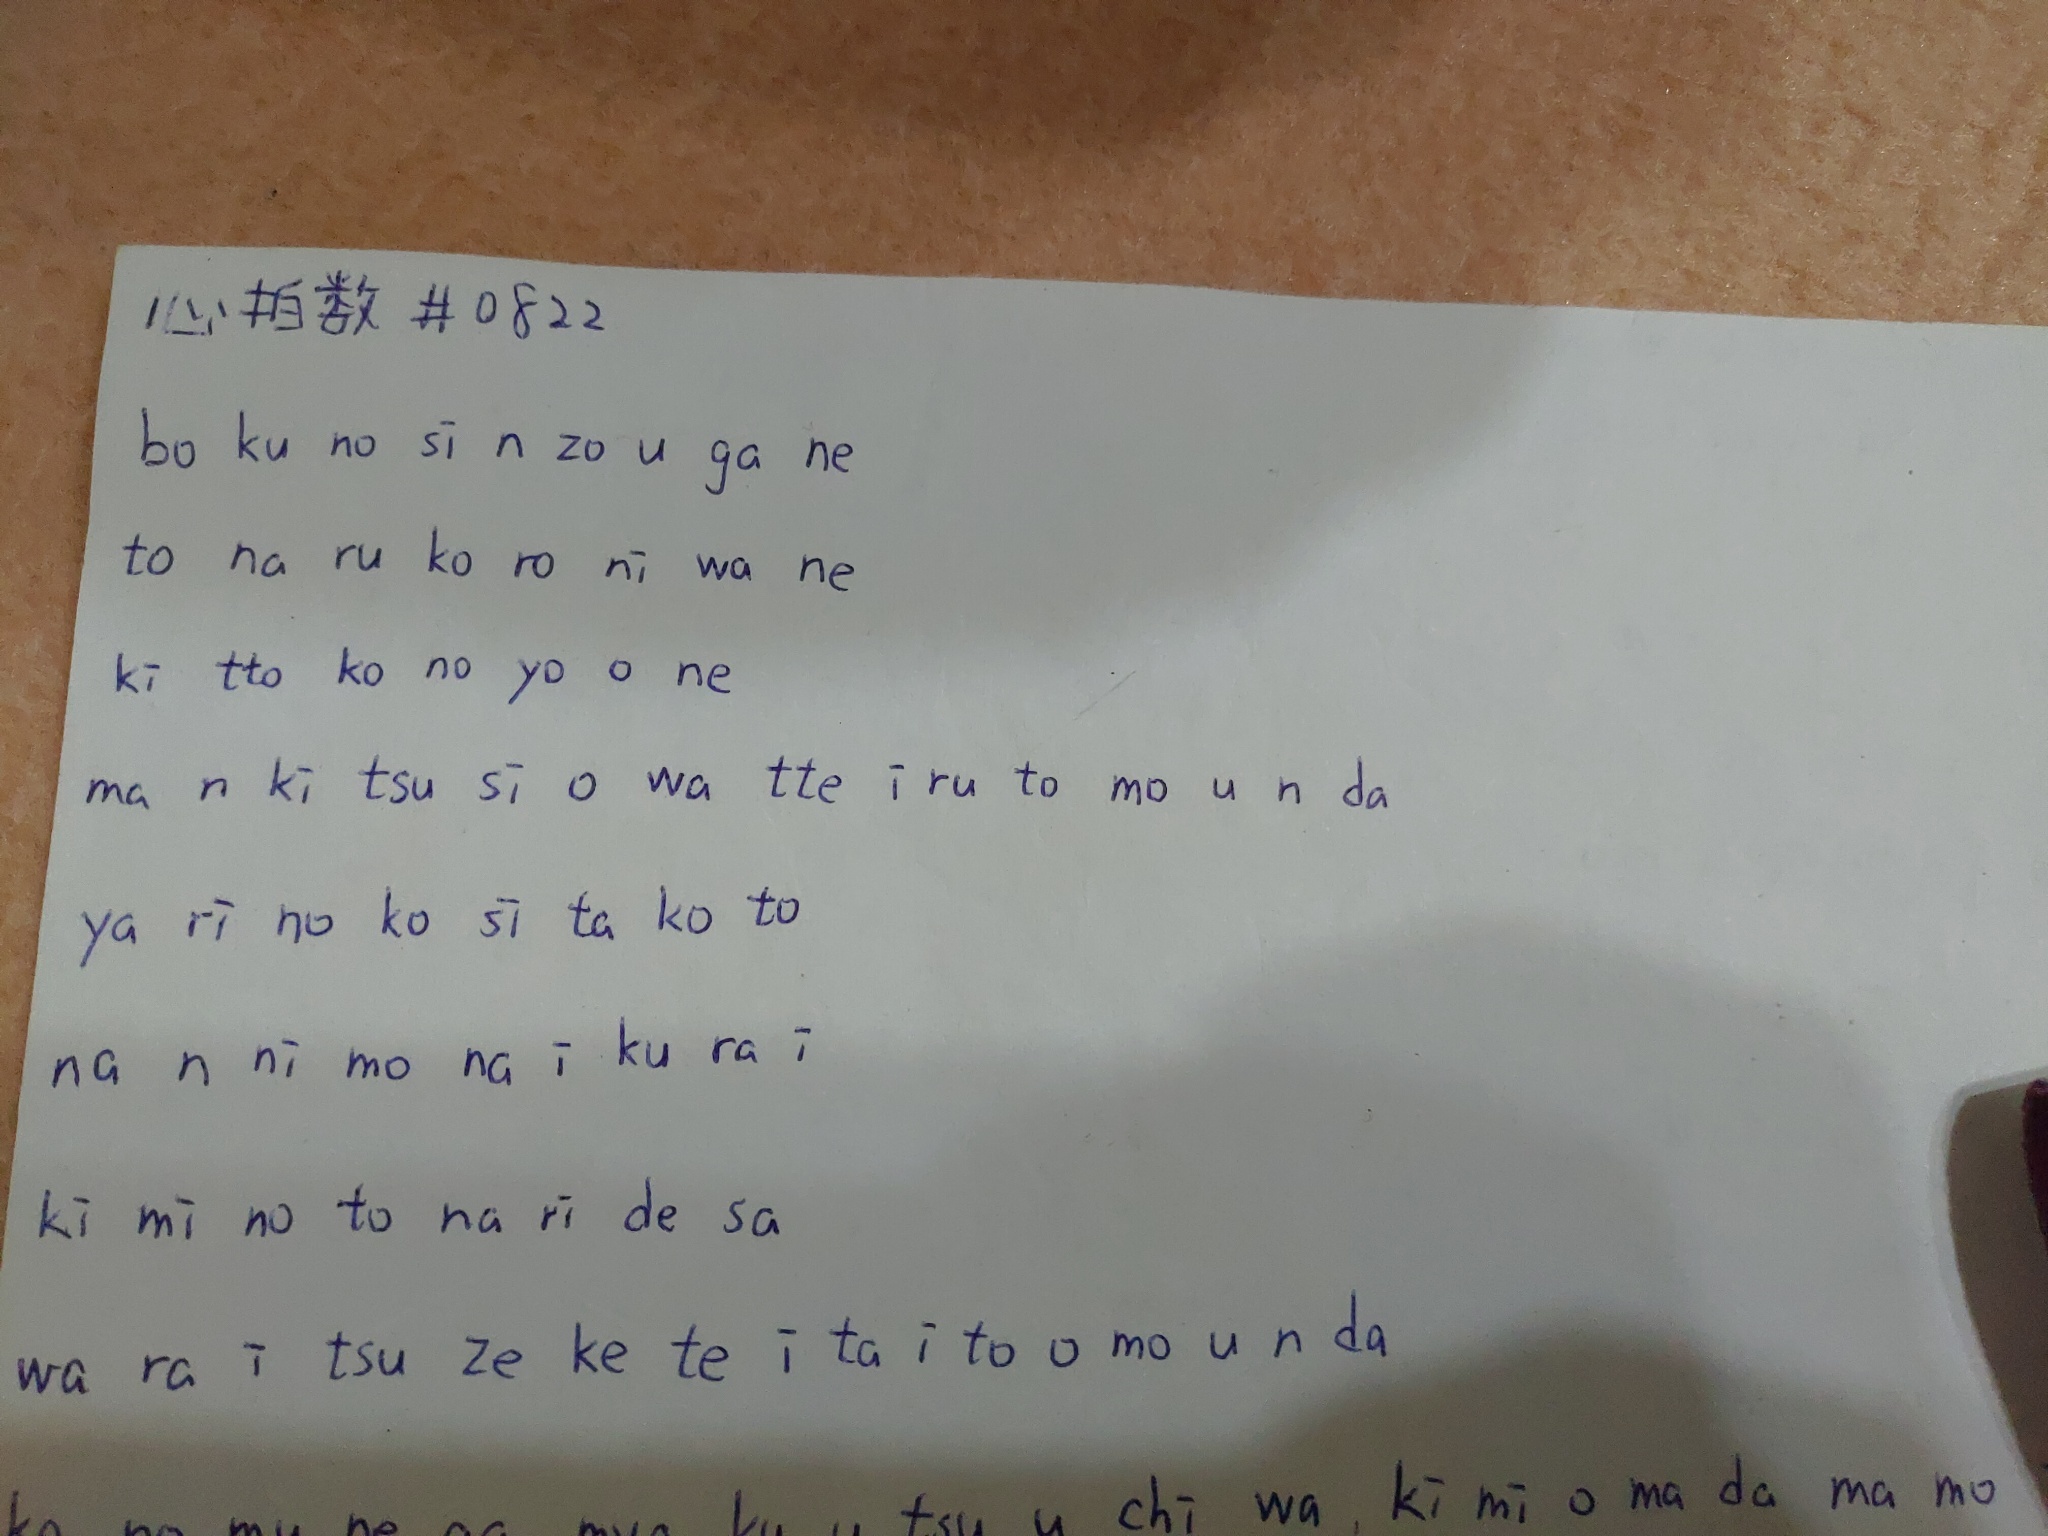 心拍数 #0822
bo ku no si n zo u ga ne
to na ru ko ro ni wa ne
ki tto ko no yo o ne
ma n ki tsu si o wa tte i ru to mo u n da
ya ri no ko si ta ko to
na n ni mo na i ku ra i
ki mi no to na ri de sa
wa ra i tsu ze ke te i ta i to o mo u n da
ko no mu ne ga mya ku u tsu u chi wa, ki mi o ma da ma mo